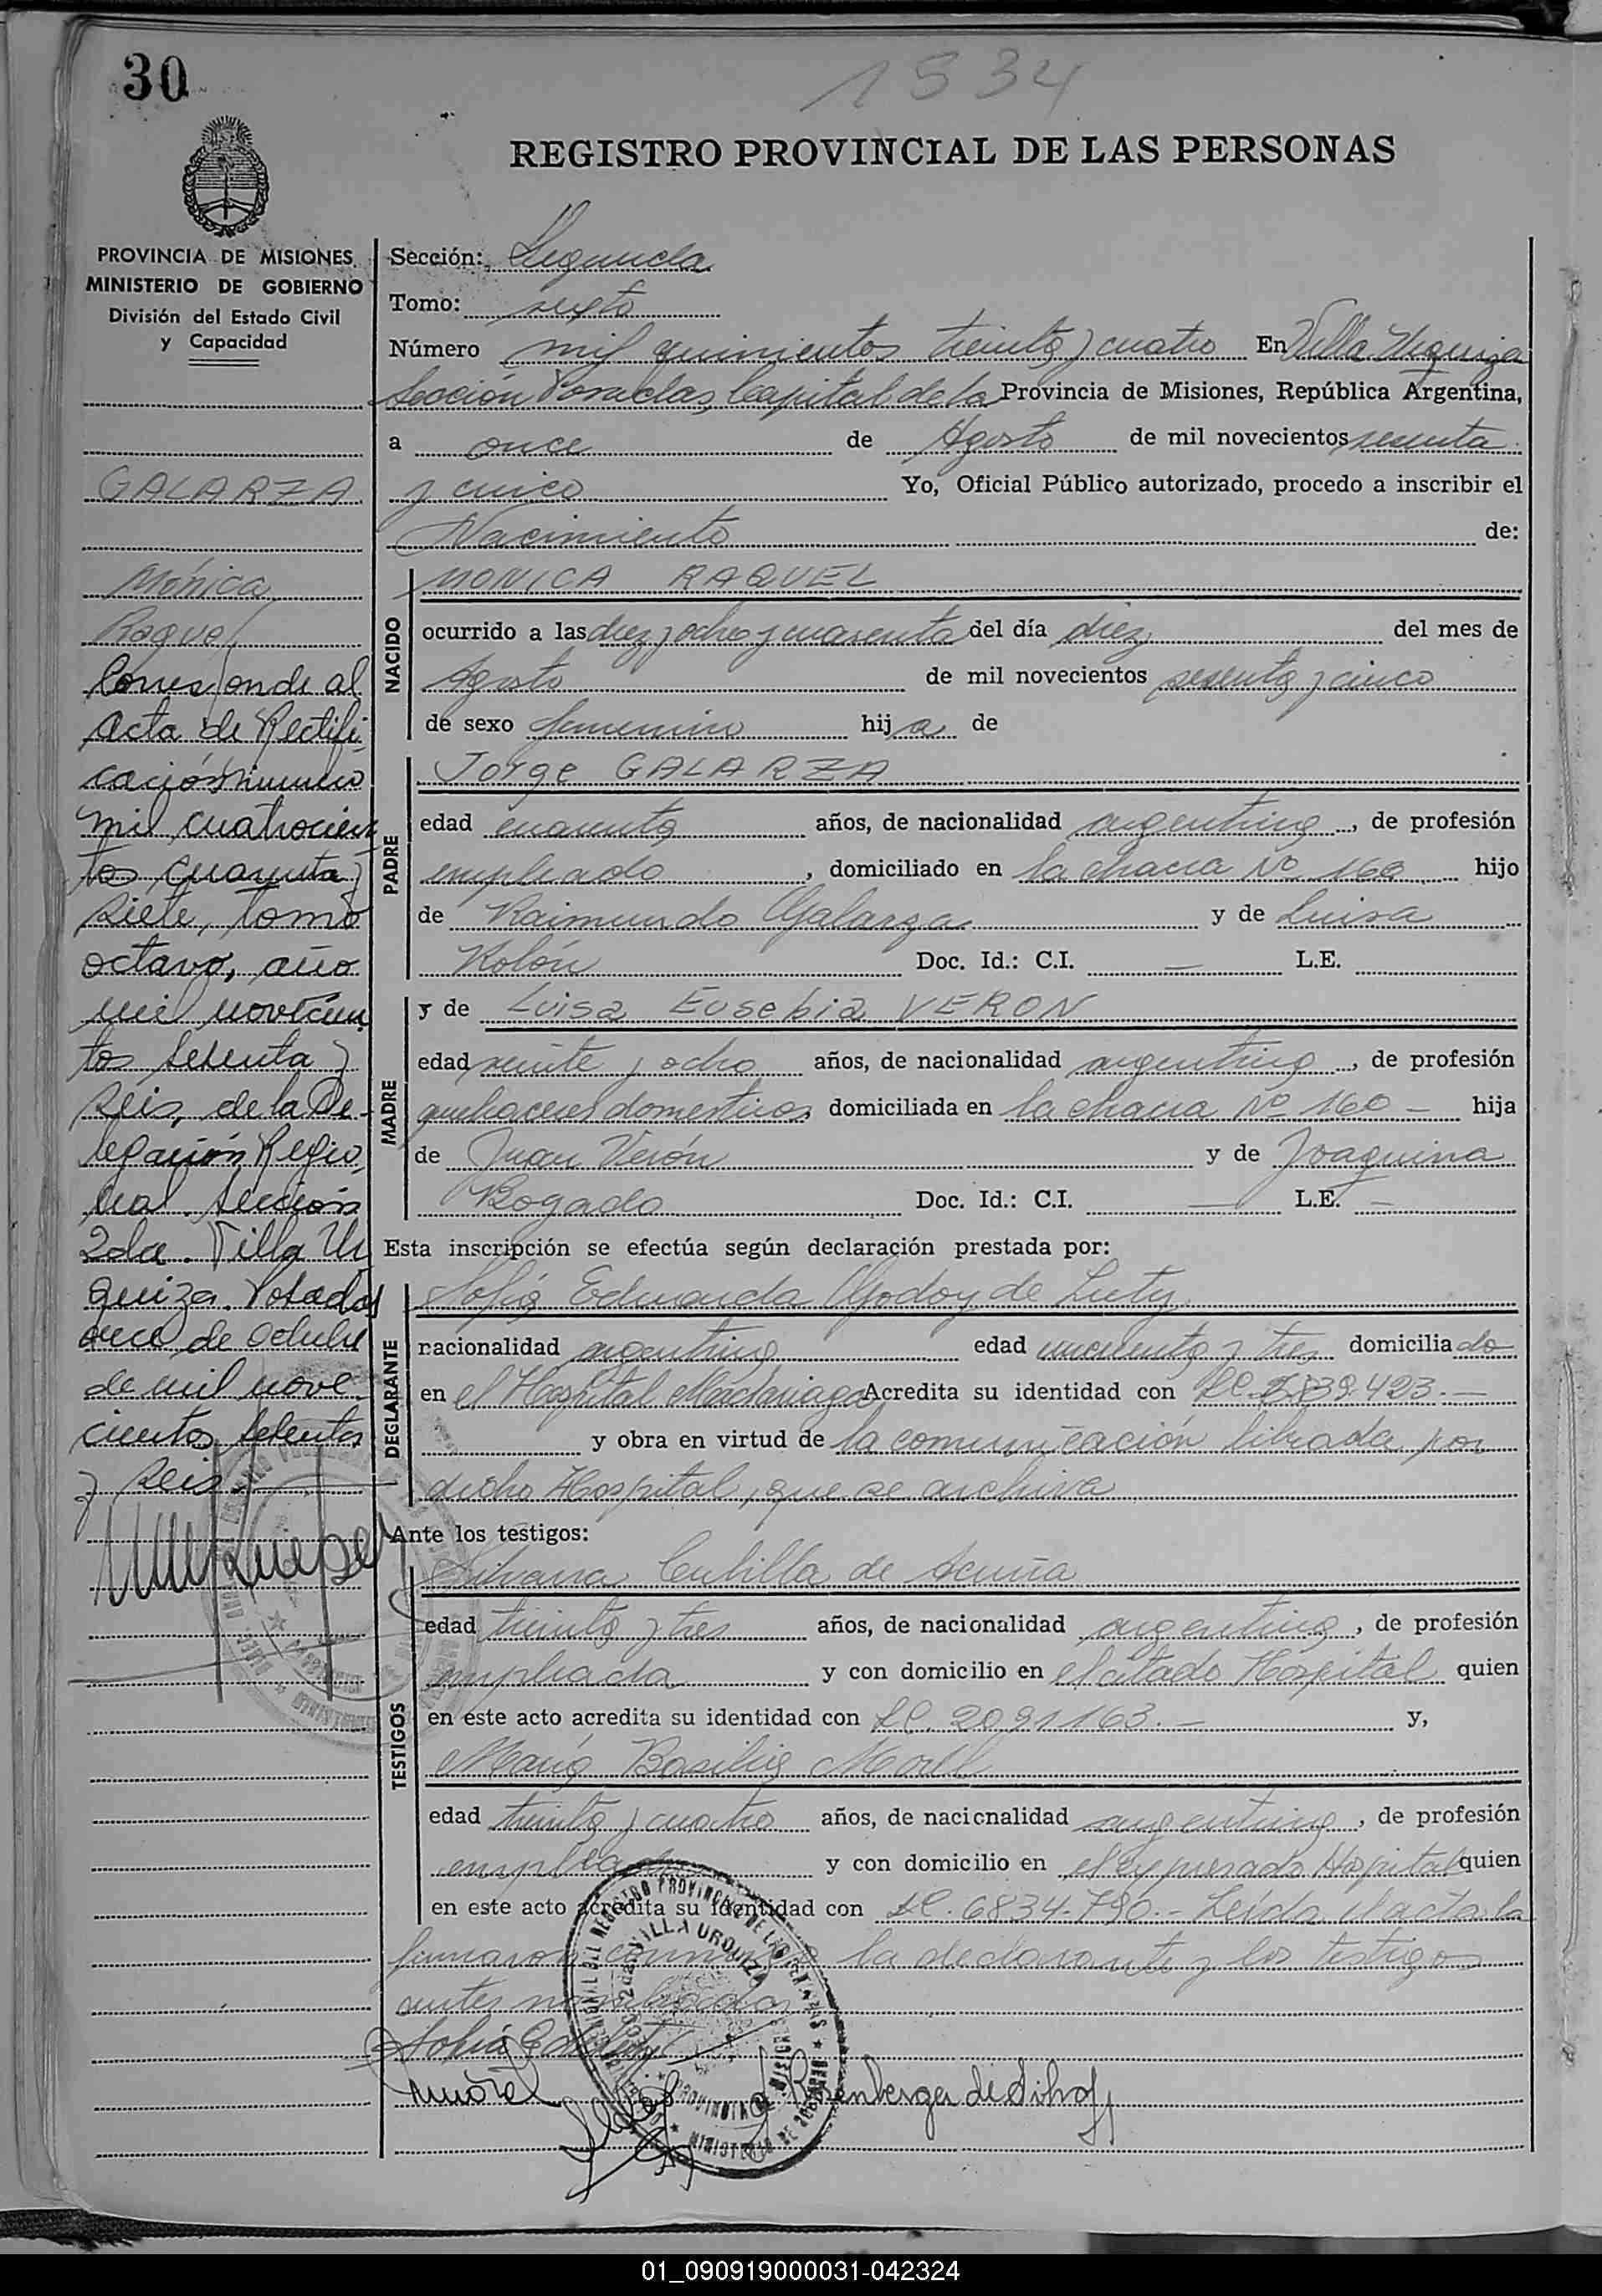 30
1534
REGISTRO PROVINCIAL DE LAS PERSONAS
PROVINCIA DE MISIONES
MINISTERIO DE GOBIERNO
División del Estado Civil
y Capacidad
GALARZA
Mónica
Raquel
Corresponde al
acta de Rectifi
cación número
mil cuatrocien
tos cuarenta y
siete, tomo
octavo, año
mil novecien
tos setenta y
seis, de la De-
legación Regio
nal Sección
2da. Villa Ur
quiza. Posadas
once de Octubre
de mil nove
cientos setenta
y seis.
Sección: Segunda
Tomo: sexto
Número mil quinientos treinta y cuatro En Villa Urquiza
Sección Posadas, Capital de la Provincia de Misiones, República Argentina,
a once de Agosto de mil novecientos sesenta
y cinco Yo, Oficial Público autorizado, procedo a inscribir el
Nacimiento de:
NACIDO
MONICA RAQUEL
ocurrido a las diez y ocho y cuarenta del día diez del mes de
Agosto de mil novecientos sesenta y cinco
de sexo femenino hija de
PADRE
Jorge GALARZA
edad cuarenta años, de nacionalidad argentina, de profesión
empleado, domiciliado en la chacra Nº 160 hijo
de Raimundo Galarza y de Luisa
Kolón Doc. Id.: C.I. — L.E.
MADRE
y de Luisa Eusebia VERON
edad veinte y ocho años, de nacionalidad argentina, de profesión
quehaceres domesticos, domiciliada en la chacra Nº 160 — hija
de Juan Verón y de Joaquina
Bogado Doc. Id.: C.I. — L.E. —
Esta inscripción se efectúa según declaración prestada por:
DECLARANTE
Sofía Eduarda Godoy de Luty
nacionalidad argentina edad cincuenta y tres domiciliado
en el Hospital Madariaga Acredita su identidad con LC. 423. —
y obra en virtud de la comunicación librada por
dicho Hospital, que se archiva
Ante los testigos:
TESTIGOS
Silvana Cubilla de Acuña
edad treinta y tres años, de nacionalidad argentina, de profesión
empleada y con domicilio en el citado Hospital quien
en este acto acredita su identidad con LC. 2091163. — y,
María Basilia Morel
edad treinta y cuatro años, de nacionalidad argentina, de profesión
empleada y con domicilio en el expresado Hospital quien
en este acto acredita su identidad con LC. 6834.790.— Leída el acta la
firmaron conmigo la declarante y los testigos
antes nombrados
Sofía G de Luty
VILLA URQUIZA
01_090919000031-042324